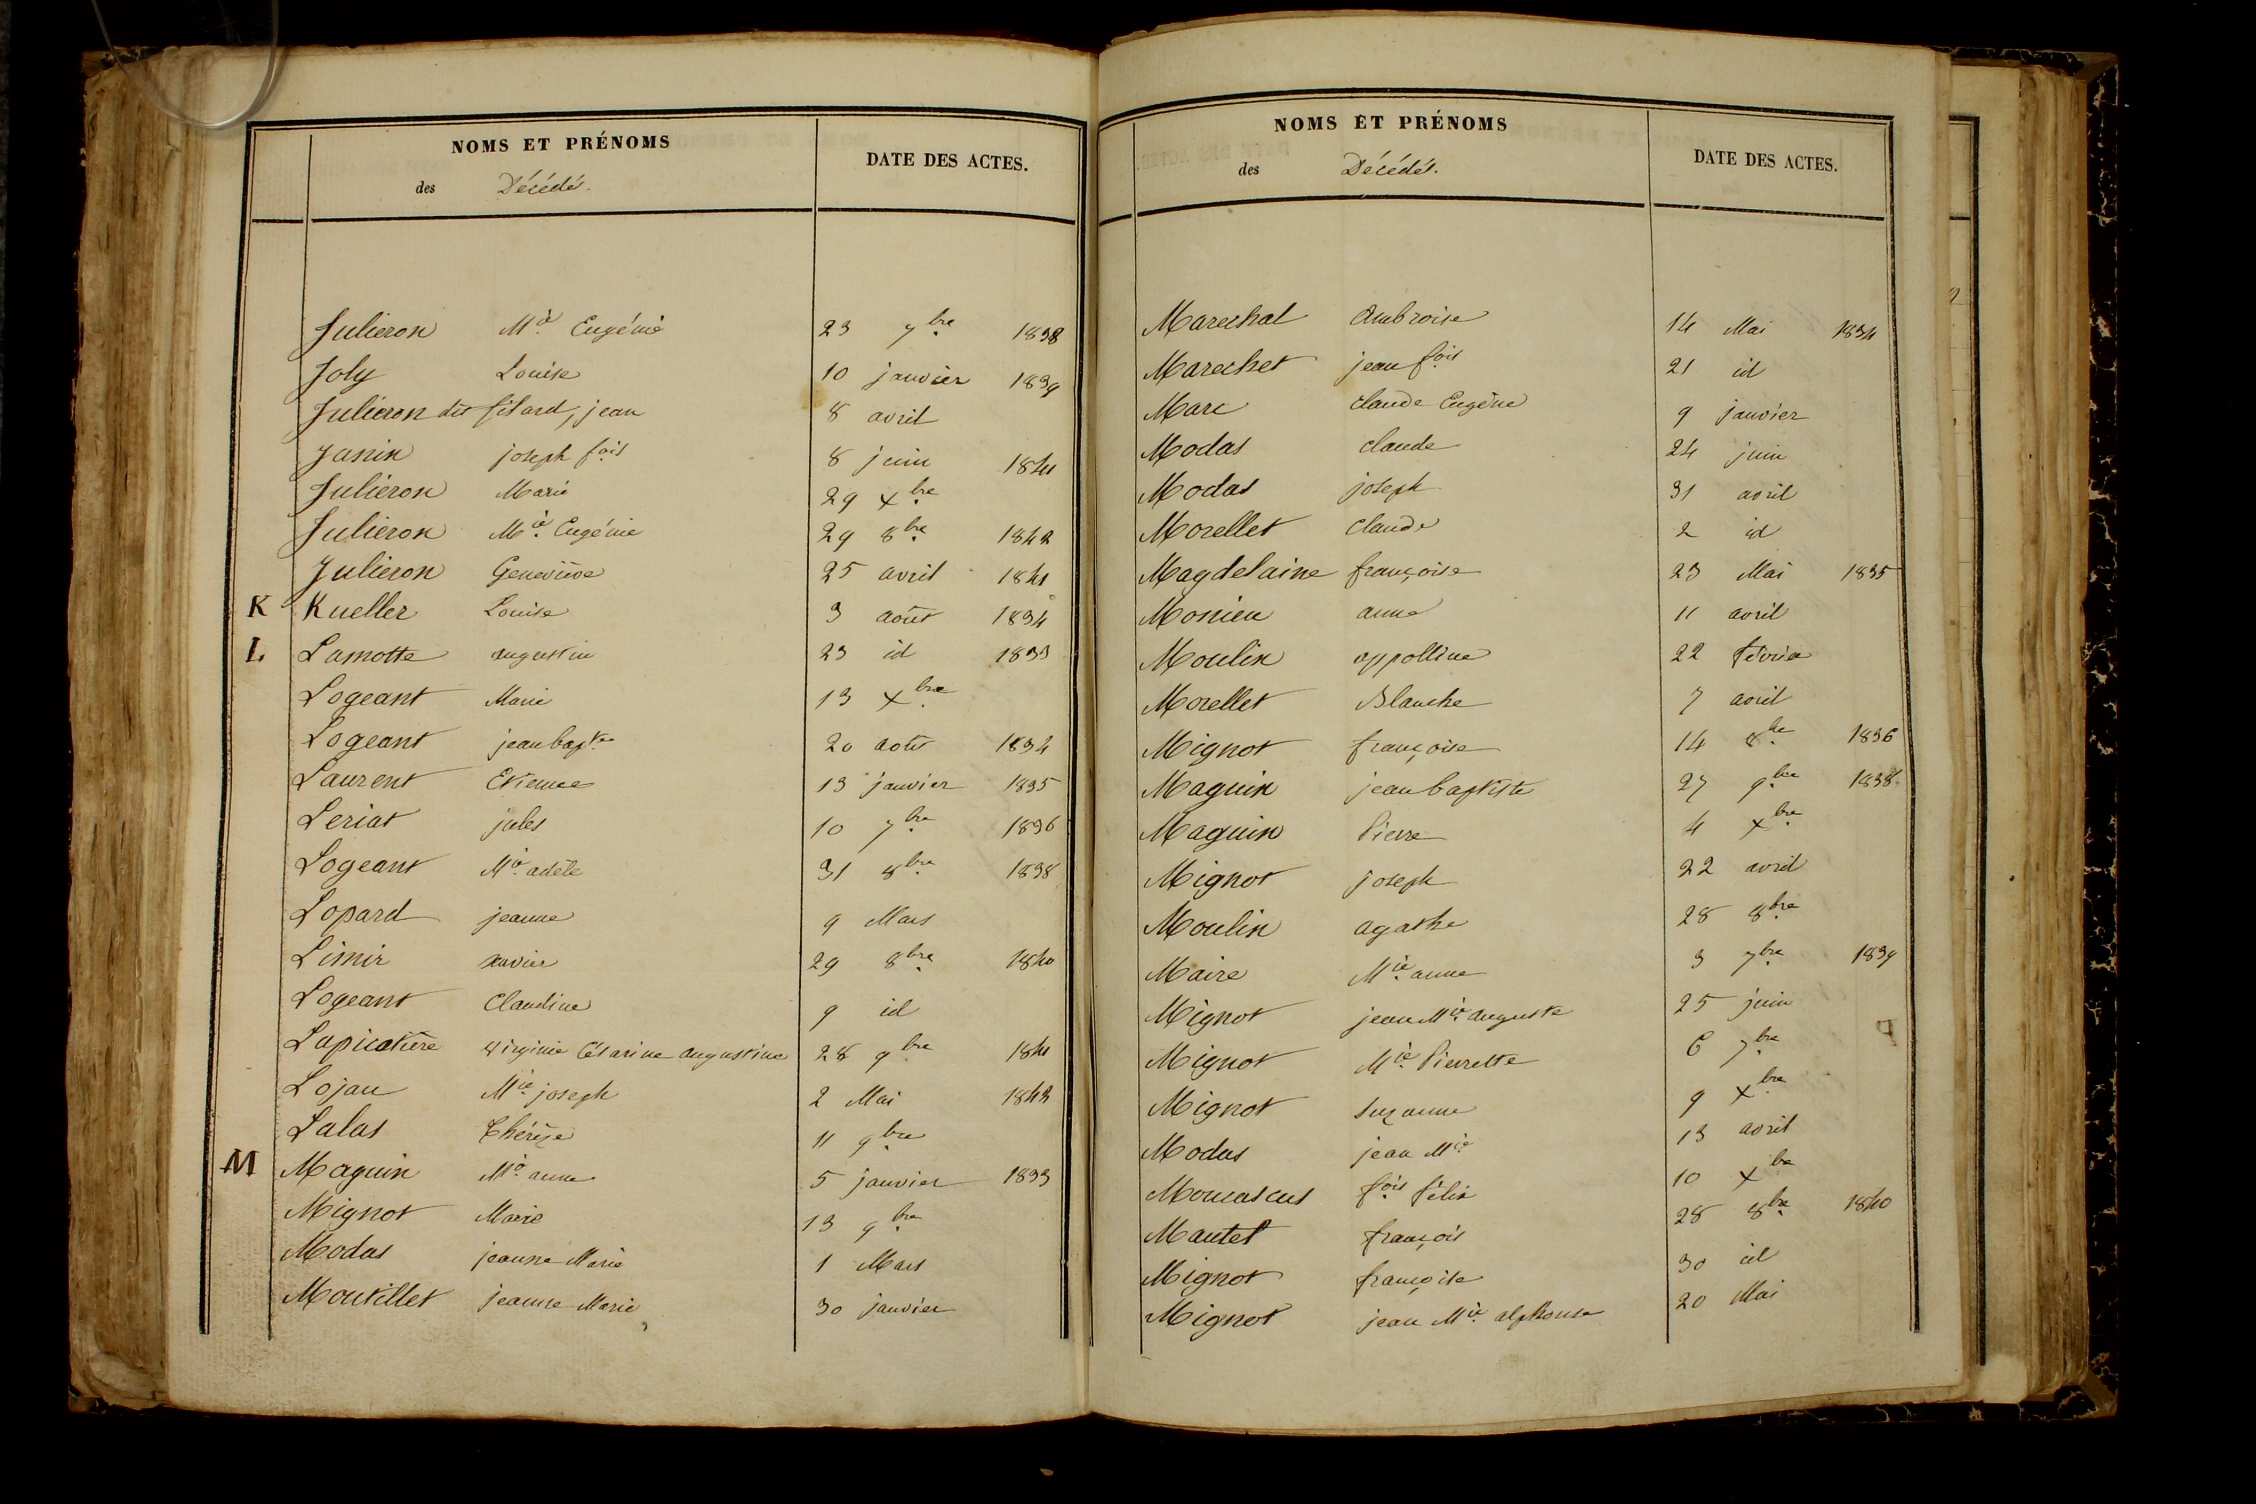 NOMS ET PRÉNOMS
des Décédés.
DATE DES ACTES.
Julieron Mie Eugénie 23 7bre 1838
Joly Louise 10 janvier 1839
Julieron dit fitard, jean 8 avril
Janin joseph fois 8 juin 1841
Julieron Marie 29 xbre
Julieron Mie Eugénie 29 8bre 1842
Julieron Geneviève 25 avril 1841
K Kueller Louise 3 août 1834
L Lamotte augustin 23 id 1833
Logeant Marie 13 xbre
Logeant jean bapte 20 août 1834
Laurent Etienne 13 janvier 1835
Leriat jules 10 7bre 1836
Logeant Mie adèle 31 8bre 1838
Lopard jeanne 9 Mars
Limir xavier 29 8bre 1840
Logeant Claudine 9 id
Lapicotière virginie Césarine augustine 28 9bre 1841
Lojau Mie joseph 2 Mai 1842
Lalas Thérèze 11 9bre
M Maguin Mie anne 5 janvier 1833
Mignot Marie 13 9bre
Modas jeanne Marie 1 Mars
Moutillet jeanne Marie 30 janvier
NOMS ET PRÉNOMS
des Décédés.
DATE DES ACTES.
Marechal ambroise 14 Mai 1834
Marechet jean fois 21 id
Marc claude Eugène 9 janvier
Modas claude 24 juin
Modas joseph 31 avril
Morellet claude 2 id
Magdelaine françoise 23 Mai 1835
Monieu anne 11 avril
Moulin appolline 22 février
Morellet Blanche 7 avril
Mignot françoise 14 8bre 1836
Maguin jean baptiste 27 9bre 1838
Maguin Pierre 4 xbre
Mignot joseph 22 avril
Moulin agathe 28 8bre
Maire Mie anne 3 7bre 1839
Mignot jean Mie auguste 25 juin
Mignot Mie Pierrette 6 7bre
Mignot Suzanne 9 xbre
Modas jean Mie 13 avril
fois félix 10 xbre
Mautet françois 28 8bre 1840
Mignot françoise 30 id
Mignot jean Mie alphonse 20 Mai